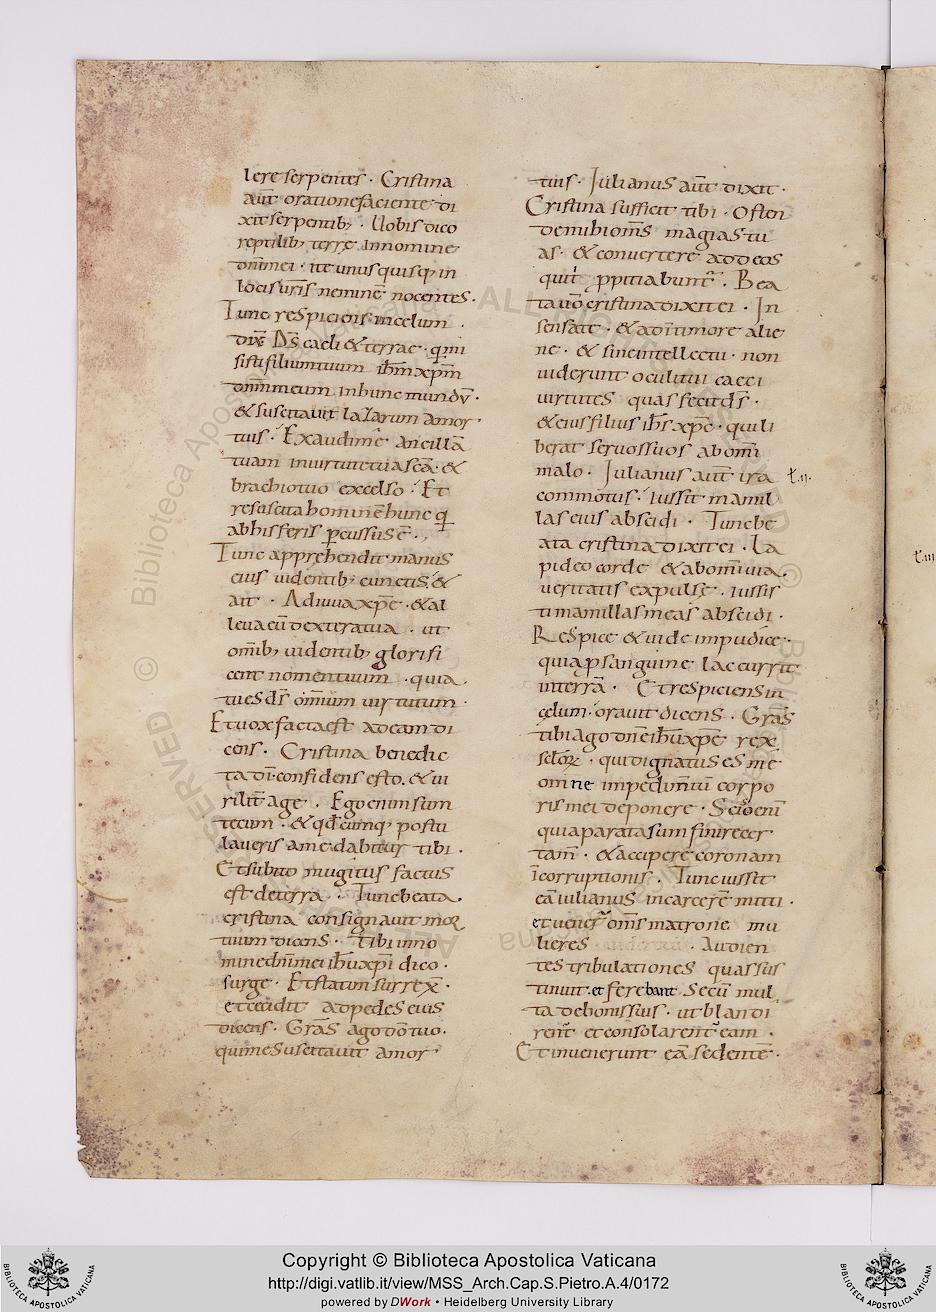 lere serpentes · Cristina
aut̄ orationefaciente di
xit serpentib; · Uobis dico
reptilib; terrę Innomine
dn̄imei · ite unusquisq; in
locis urīs neminē nocentes ·
Tunc respiciens incelum ·
dix̄ D̄s caeli &terrae · qui
sistifiliumtuum ih̄m xp̄m
dn̄mmeum inhunc mundū ·
&suscitauit laZarum amor
tuis · Exaudi me ancillā
tuam inuirtutetua scā · &
brachiotuo excelso · Et
resuscita hominē hunc q
abhis feris percussus ē ·
Tunc apprehendit manus
eius uidentib; cunctis · &
ait · Adiuua xp̄e · &al
leua eū dexteratua · ut
omīb; uidentib; glorifi
cent nomentuum · quia ·
tu es d̄s omnium uirtutum ·
Et uox facta est adeam di
cens · Cristina benedic
ta dī confidens esto · & ui
rilit̄ age · Ego enim sum
tecum · & qd̄cumq; postu
laueris a me dabitur tibi ·
Et subito mugitus factus
est deterra · Tunc beata
cristina consignauit mor
tuum dicens · Tibi inno
minedn̄imei ih̄uxp̄i dico ·
surge · Et statim surrex̄ ·
et cecidit ad pedes eius
dicens · Gras̄ ago dō tuo ·
quimesuscitauit amor
tuis · Julianus aut̄ dixit ·
Cristina sufficit tibi · Osten
demihiom̄s magias tu
as · & conuertere ad deos
qui t̄ ppitiabunt̄ · Bea
ta uō cristina dixit ei · In
sensate · & adī timore alie
ne · & sineintellectu · non
uiderunt oculi tui caeci
uirtutes quas fecit d̄s ·
& eius filius ih̄s xp̄c · qui li
berat seruossuos abomī
malo · Julianus aut̄ ira
commotus · iussit mamil
las eius abscidi · Tunc be
ata cristina dixit ei · La
pideo corde & abomī uia
ueritatis expulse · iussis
ti mamillas meas abscidi ·
Respice & uide impudice ·
quia psanguine lac currit
interrā · Et respiciens in
cęlum · orauit dicens · Gras̄
tibi ago dn̄e ih̄u xp̄e rex
sclorꝝ · qui dignatus es me
omne impedimtū corpo
ris mei deponere · Scio enī
quia parata sum finire cer
tam̄ · & accipere coronam
īcorruptionis · Tunc iussit
eā iulianus incarcerē mitti ·
et uener̄ oms̄ matrone mu
lieres · Audien
tes tribulationes quas sus
tinuit · et ferebant secū mul
ta debonissuis · ut blandi
rent̄ et consolarent̄ eam ·
Et inuenerunt eā sedentē ·
Copyright © Biblioteca Apostolica Vaticana
http://digi.vatlib.it/view/MSS_Arch.Cap.S.Pietro.A.4/0172
powered by DWork • Heidelberg University Library